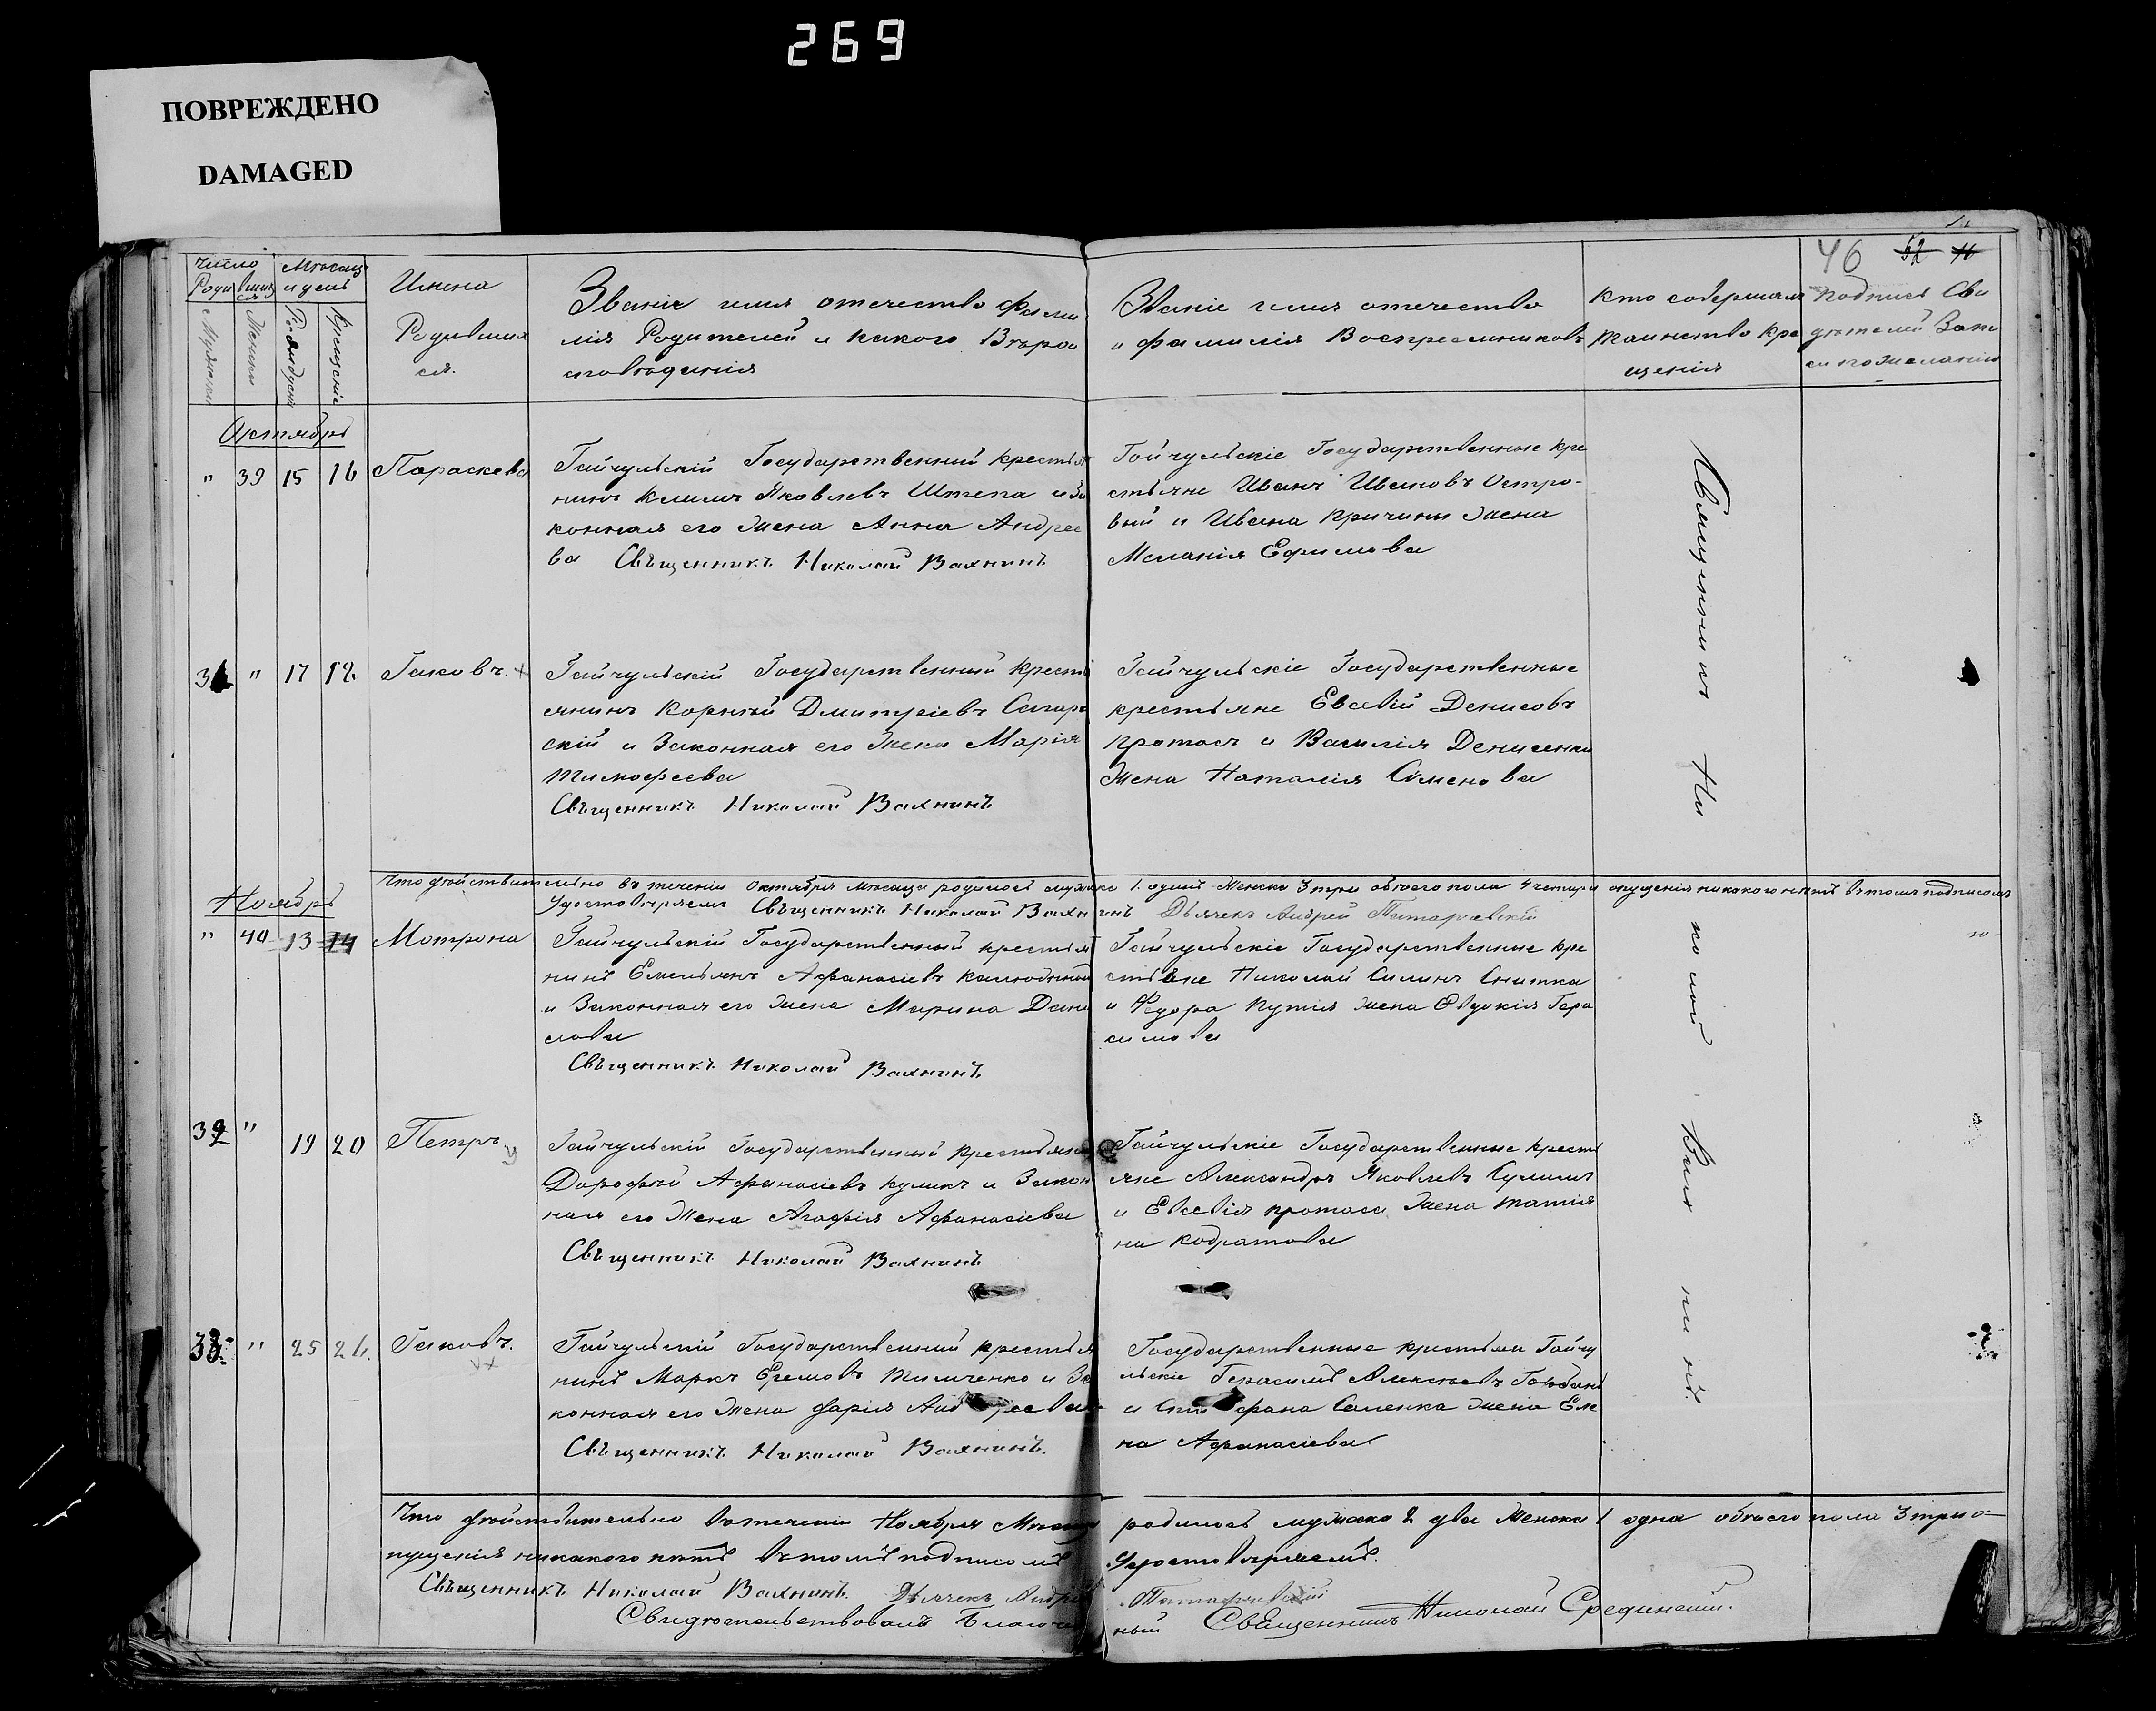 269
ПОВРЕЖДЕНО
DAMAGED
46 52
Число Родившихся
Мужеска
Женска
Месяц и день
Рождения
Крещение
Имена
Родивших
ся.
Званіе имя отечество фами
лія Родителей и какого Вѣрои
споведанія
Званіе имя отечество
и фамилія Воспреемниковъ
Кто совершалъ
таинство кре
щенія
подпись Сви
дѣтелей Запи
си по желанію
Октябрь
" 39 15 16 Параскева
Гайчульскій Государственный крестья
нинъ Климъ Яковлевъ Штепа и За
конная его жена Анна Андрее
ва Свѣщенникъ Николай Вахнинъ
Гайчульскіе Государственные кре
стьяне Иванъ Ивановъ Остро-
вый и Ивана Кричины жена
Меланія Ефимова
31 " 17 18 Іаковъ.
Гайчульскій Государственный кресть
янинъ Корнѣй Дмитріевъ Сагар
скій и Законная его жена Марія
Тимофеева
Свѣщенникъ Николай Вахнинъ
Гайчульскіе Государственные
крестьяне Евсевій Денисовъ
протасъ и Василія Денисенка
жена Наталія Сѣменова
Что дѣйствительно въ теченіи Октября месяца родилось мужеска 1 одинъ женска 3 три обоего пола 4 четыри опущенія никакого нѣтъ въ томъ подписомъ
Удостовѣряемъ Свѣщенникъ Николай Вахнинъ Дьячекъ Андрей
Ноябрь
" 40 13 14 Мотрона
Гайчульскій Государственный крестья
нинъ Емельянъ Афанасіевъ Калюжный
и Законная его жена Марина Дани
лова
Свѣщенникъ Николай Вахнинъ
Гайчульскіе Государственные кре
стьяне Николай Силинъ Снитка
и Федора Кутия жена Евдокія Гера
симова
32 " 19 20 Петръ
Гайчульскій Государственный крестьянинъ
Дорофѣй Афанасіевъ куликъ и Закон
ная его жена Агафія Афанасіева
Свѣщенникъ Николай Вахнинъ
Гайчульскіе Государственные кресть
яне Александръ Яковлевъ Сулимъ
и Евсевія протаса жена татія
на Кодратова
33 " 25 26. Іаковъ.
Гайчульскій Государственный крестья
нинъ Маркъ Еремовъ Тимченко и За
конная его жена Дарія Андреева
Свѣщенникъ Николай Вахнинъ.
Государственные крестьяни Гайчу
льскіе Герасимъ Алексѣевъ
и Стефана Саленка жена Еле
на Афанасіева
Свѣщенникъ Николай Вахнинъ.
Что дѣйствительно въ теченіи Ноября Месяца родилось мужеска 2 два женска 1 одна обоего пола 3 три о-
пущенія никакого нѣтъ въ томъ подписомъ Удостовѣряемъ.
Свѣщенникъ Николай Вахнинъ. Дьячекъ Андрей
Свидѣтельствовалъ Благочинный Священникъ Николай Срединскій.